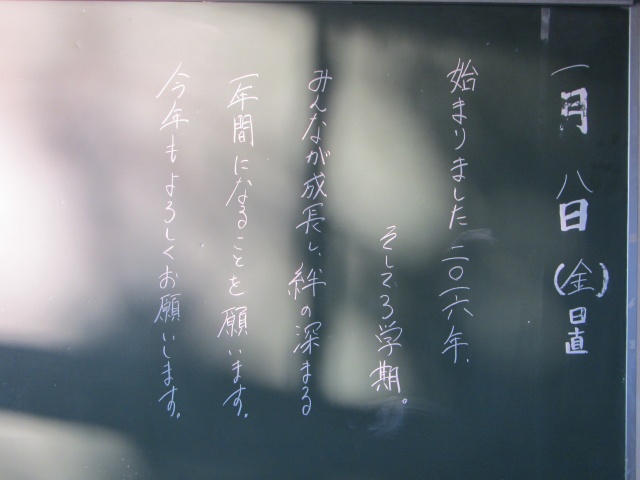 一月八日(金)日直
始まりました二〇一六年.
そして3学期。
みんなが成長し、絆の深まる
一年間になることを願います.
今年もよろしくお願いします.